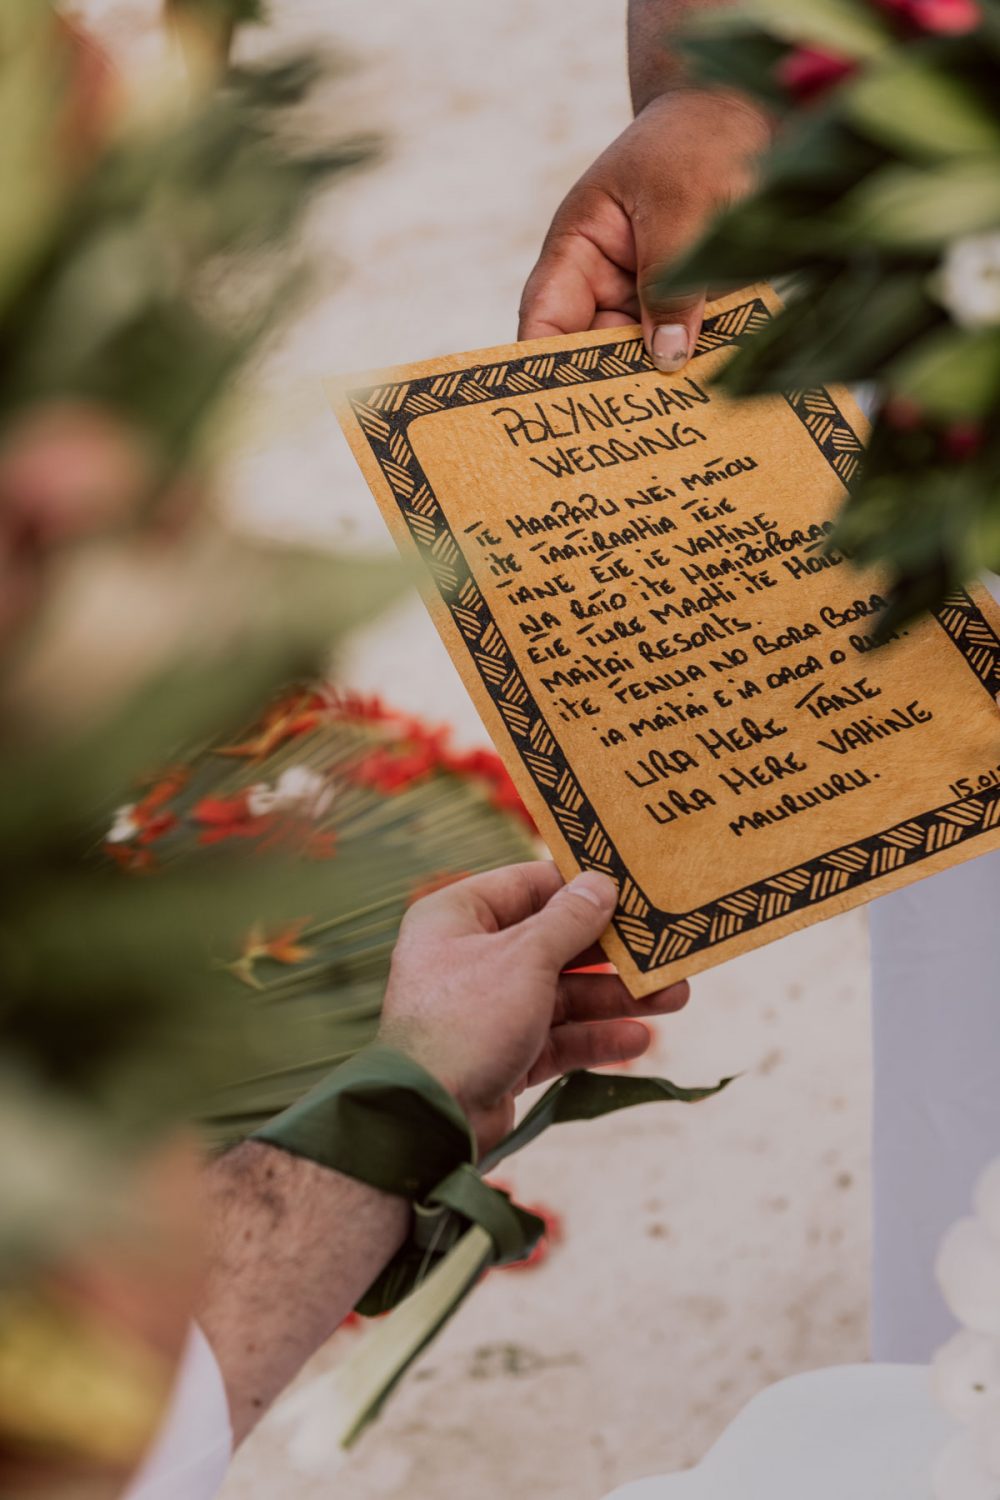 POLYNESIAN
WEDDING
TE HAAPAPU NEI MATOU
ITE TAATIRAAHIA TEIE
TANE EIE TE VAHINE
NA ROTO ITE HAAIPOIPORAA
EIE TURE MAOHI ITE
MAITAI RESORTS.
ITE FENUA NO BORA BORA
IA MAITAI E IA OAOA O
URA HERE TANE
URA HERE VAHINE
MAURUURU.